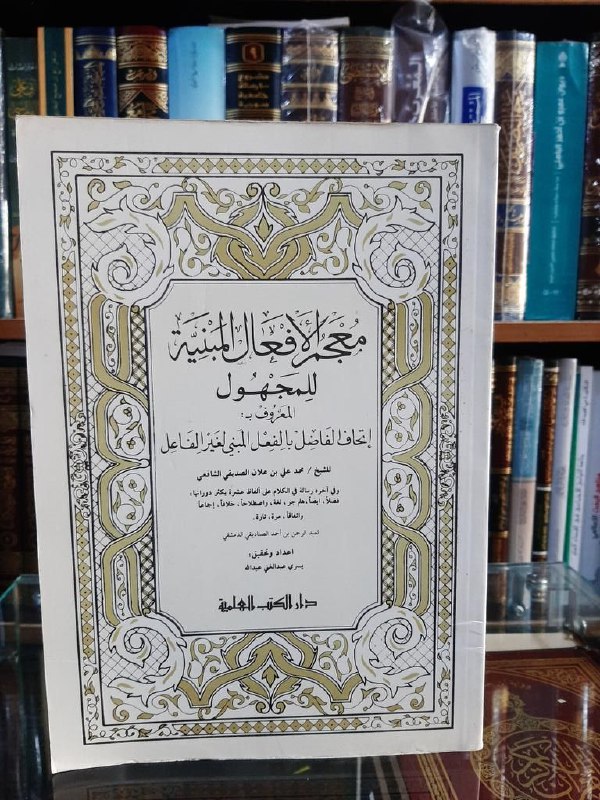 معجم الأفعال المبنية
للمجهول
المعروف بـ:
إتحاف الفاضل بالفعل المبني لغير الفاعل
للشيخ / محمد علي بن علان الصديقي الشافعي
وفي آخره رسالة في الكلام على ألفاظ عشرة يكثر دورانها،
فضلاً، أيضاً، هلم جر، لغة، واصطلاحاً، خلافاً، إجماعاً
واتفاقاً، مرة، تارة.
لعبد الرحمن بن أحمد الصناديقي الدمشقي
اعداد وتحقيق:
يسري عبدالغني عبدالله
دار الكتب العلمية